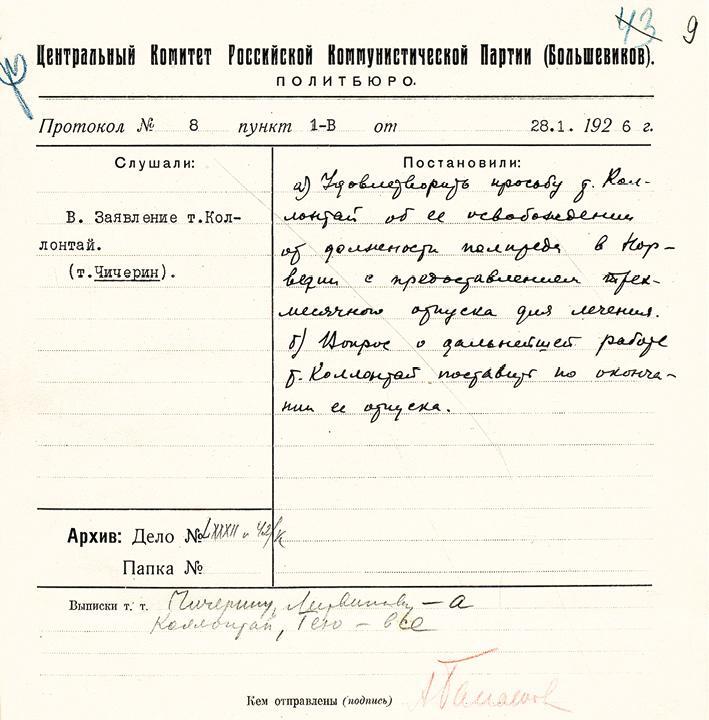 43 9
Центральный Комитет Российской Коммунистической Партии (Большевиков).
ПОЛИТБЮРО.
Протокол № 8 пункт 1-В от 28.1. 1926 г.
Слушали:
В. Заявление т.Кол-
лонтай.
(т.Чичерин).
Постановили:
а) Удовлетворить просьбу т. Кол-
лонтай об ее освобождении
от должности полпреда в Нор-
вегии с предоставлением трех-
месячного отпуска для лечения.
б) Вопрос о дальнейшей работе
т. Коллонтай поставить по оконча-
нии ее отпуска.
Архив: Дело № LXXXII
Папка №
Выписки т. т. Чичерину, Литвинову – а
Коллонтай, – все
Кем отправлены (подпись)